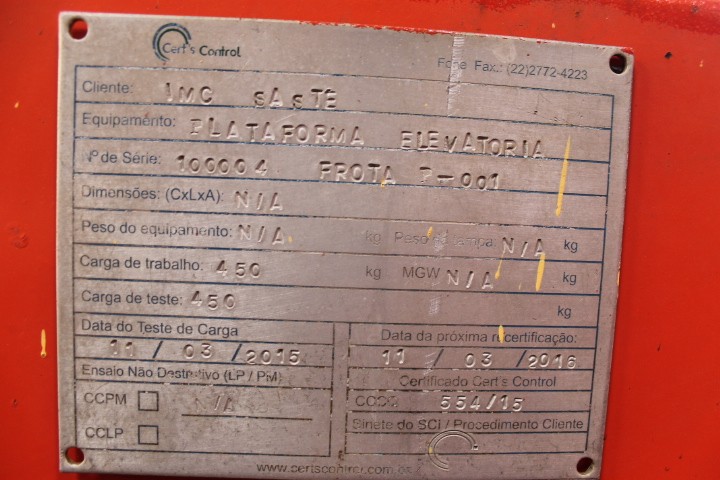 Cert's Control
Fone Fax.: (22)2772-4223
Cliente: IMC SASTE
Equipamento: PLATAFORMA ELEVATORIA
Nº de Série: 100004 FROTA P-001
Dimensões: (CxLxA): N/A
Peso do equipamento: N/A kg Peso da tampa: N/A kg
Carga de trabalho: 450 kg MGW N/A kg
Carga de teste: 450 kg
Data do Teste de Carga
11 / 03 / 2015
Data da próxima recertificação:
11 / 03 / 2016
Ensaio Não Destrutivo (LP / PM)
CCPM
/A
CCLP
Certificado Cert's Control
554/15
Sinete do SCI / Procedimento Cliente
www.certscontrol.com.br